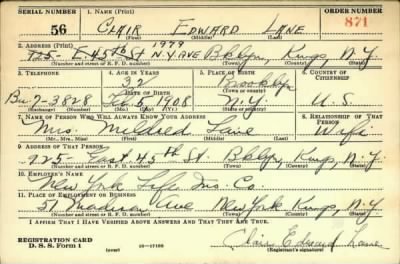 SERIAL NUMBER 1. NAME (Print) ORDER NUMBER
56 CLAIR EDWARD LANE 871
(First) (Middle) (Last)
2. ADDRESS (Print) 1979
725- E. 45th St N.Y. AVE Bklyn, Kings, N.Y.
(Number and street or R. F. D. number) (Town) (County) (State)
3. TELEPHONE 4. AGE IN YEARS 5. PLACE OF BIRTH 6. COUNTRY OF CITIZENSHIP
32 Brooklyn
(Town or county)
DATE OF BIRTH
Bu 7-3828 Feb 6 1908 N.Y. U.S.
(Exchange) (Number) (Mo.) (Day) (Yr.) (State or country)
7. NAME OF PERSON WHO WILL ALWAYS KNOW YOUR ADDRESS 8. RELATIONSHIP OF THAT PERSON
Mrs. Mildred Lane Wife
(Mr., Mrs., Miss) (First) (Middle) (Last)
9. ADDRESS OF THAT PERSON
725- East 45th St. Bklyn, Kings, N.Y.
(Number and street or R. F. D. number) (Town) (County) (State)
10. EMPLOYER'S NAME
New York Life Ins. Co.
11. PLACE OF EMPLOYMENT OR BUSINESS
51 Madison Ave New York Kings, N.Y.
(Number and street or R. F. D. number) (Town) (County) (State)
I AFFIRM THAT I HAVE VERIFIED ABOVE ANSWERS AND THAT THEY ARE TRUE.
REGISTRATION CARD
D. S. S. Form 1 (over) 16-17105 Clair Edward Lane
(Registrant's signature)